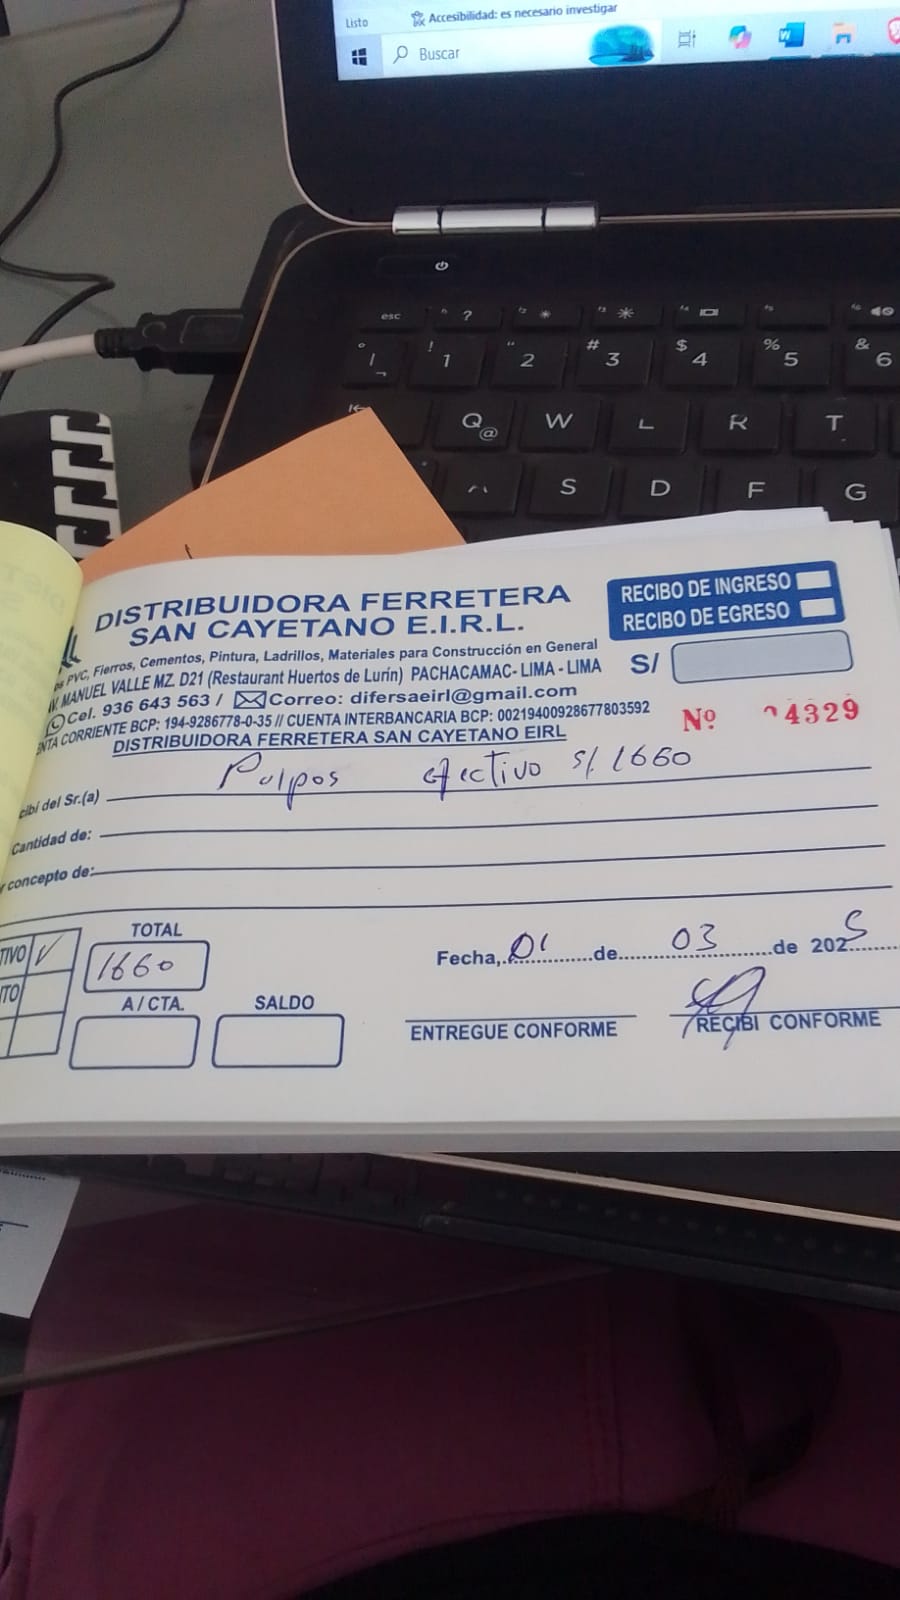 Listo
Accesibilidad: es necesario investigar
Buscar
esc
! 1 " 2 # 3 $ 4 % 5 & 6
Q @ W R T
S D F G
DISTRIBUIDORA FERRETERA
SAN CAYETANO E.I.R.L.
PVC, Fierros, Cementos, Pintura, Ladrillos, Materiales para Construcción en General
MANUEL VALLE MZ. D21 (Restaurant Huertos de Lurín) PACHACAMAC- LIMA - LIMA
Cel. 936 643 563 / Correo: difersaeirl@gmail.com
CORRIENTE BCP: 194-9286778-0-35 // CUENTA INTERBANCARIA BCP: 00219400928677803592
DISTRIBUIDORA FERRETERA SAN CAYETANO EIRL
RECIBO DE INGRESO
RECIBO DE EGRESO
S/
Nº 4329
del Sr.(a) Pulpos efectivo S/. 1660
Cantidad de:
concepto de:
TOTAL
1660
A / CTA.
SALDO
Fecha, 01 de 03 de 2025
ENTREGUE CONFORME
RECIBI CONFORME